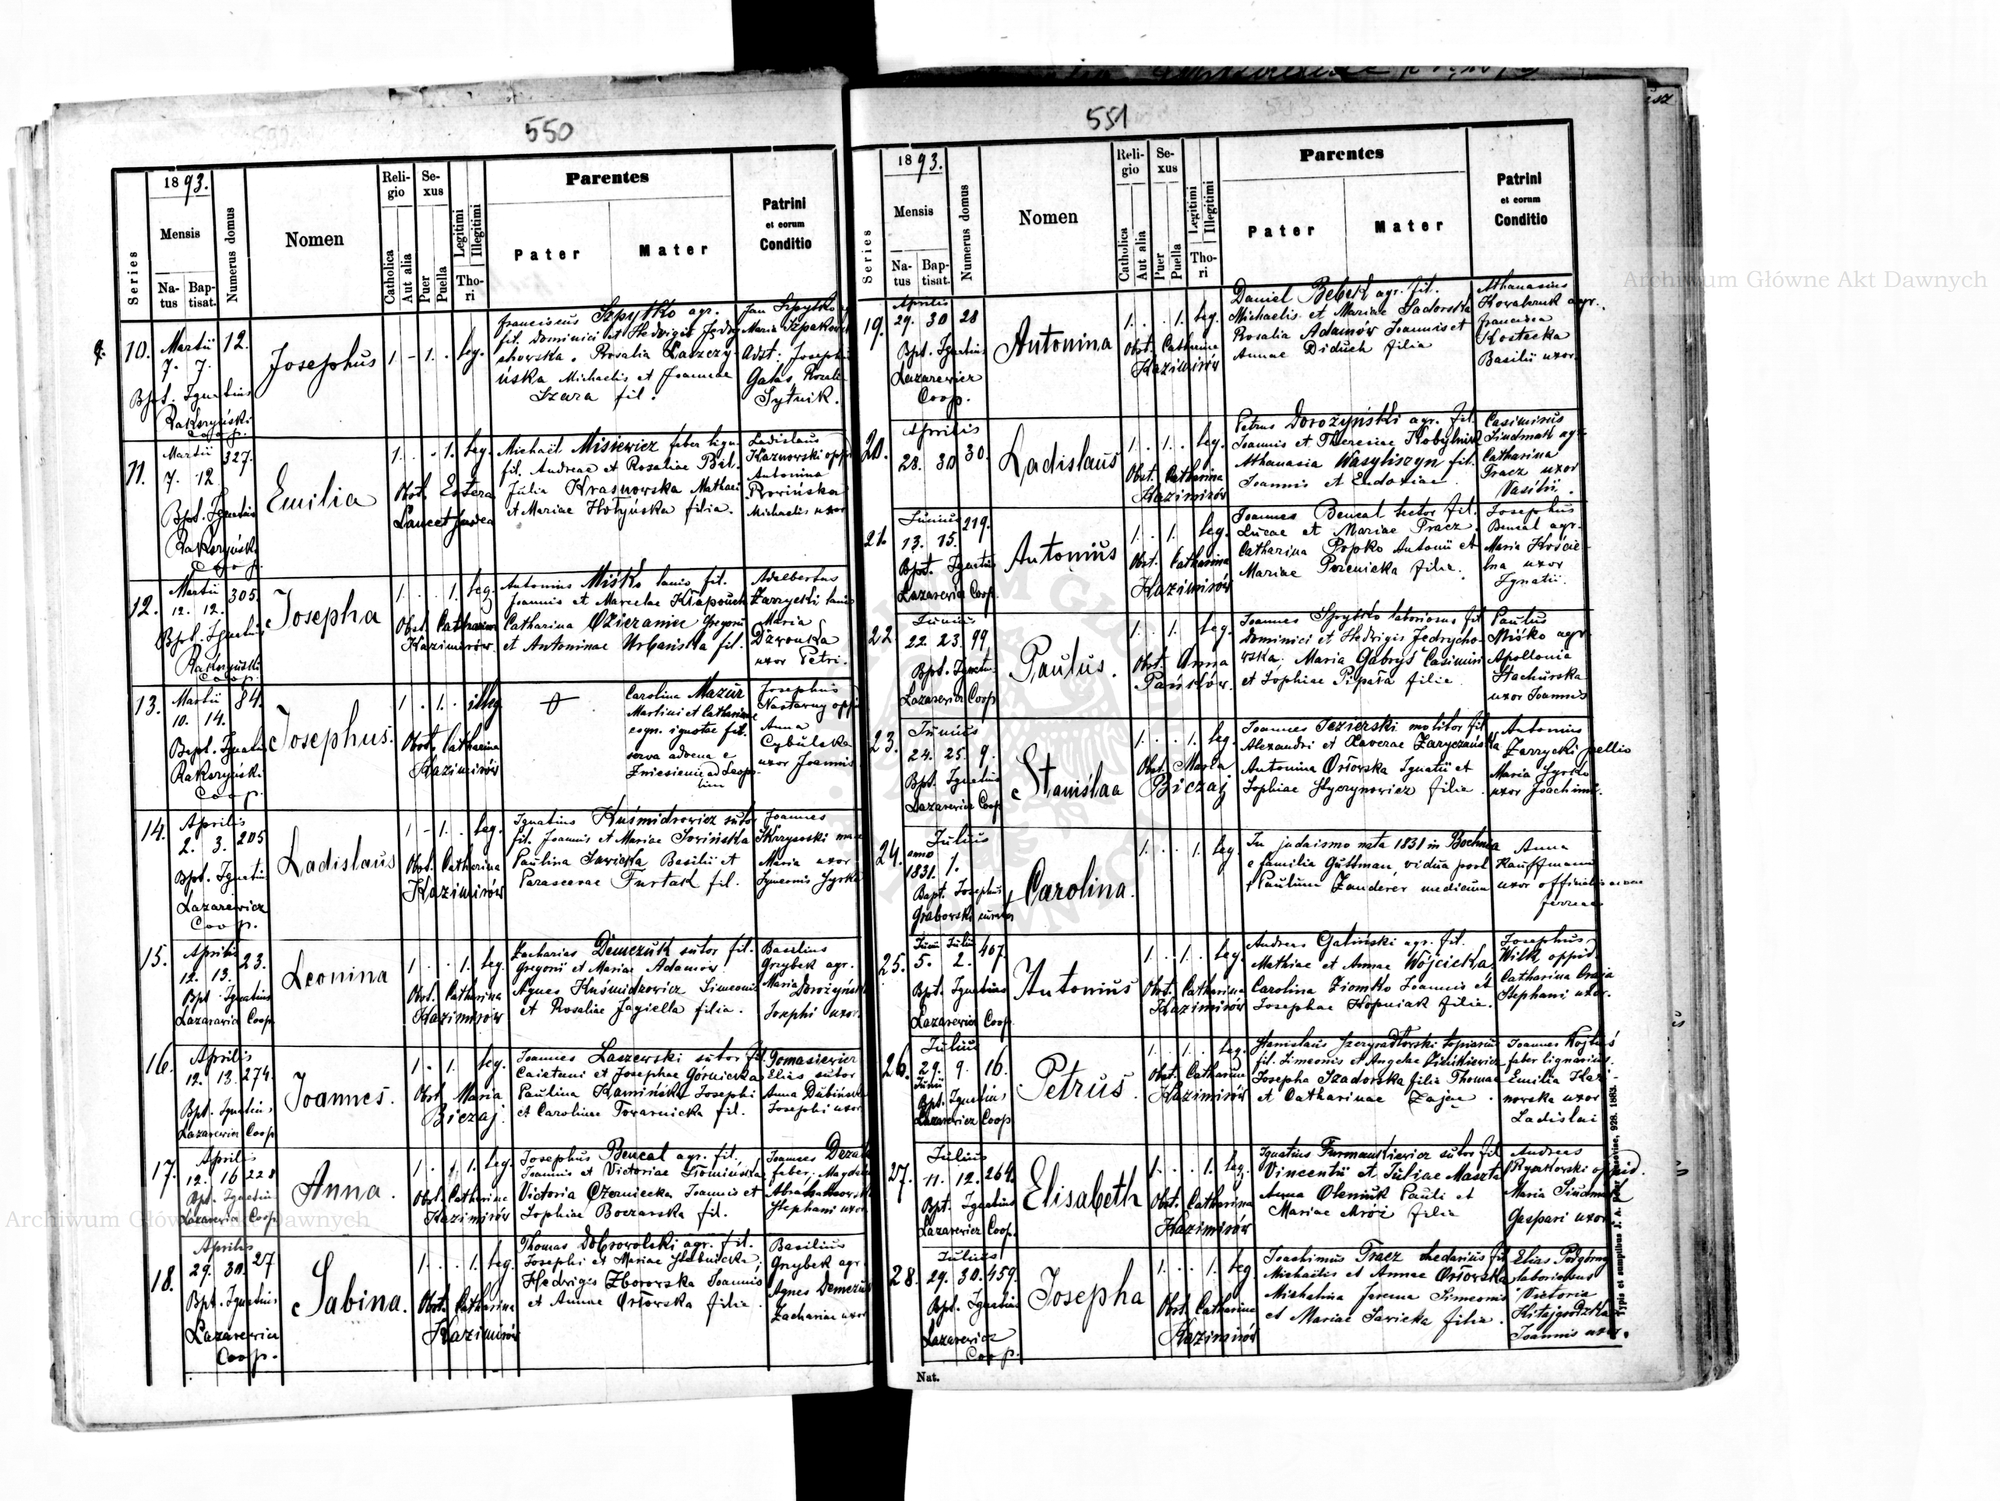 550
18 93.
Series
Mensis
Natus
Baptisat.
Numerus domus
Nomen
Religio
Catholica
Aut alia
Sexus
Puer
Puella
Legitimi
Illegitimi
Thori
Parentes
Pater
Mater
Patrini
et eorum
Conditio
10. Martii 12.
7. 7.
Bpt. Ignatius
Rakszyński
Coop.
Josephus
1 - 1. . leg.
Franciscus Szpytko agr.
fil. Dominici et Hedvigis
Rosalia
Michaelis et Joannae
Szara fil.
Jan Szpytko
Maria
Adst: Josephus
Galas, Rozalia
Sytnik.
11. Martii 327.
7. 12.
Bpt. Ignatius
Rakszyńsk.
Coop.
Emilia
1. . . 1. leg.
Obst. Estera
Michaël Misiewicz faber lign.
fil. Andreae et Rosaliae Bil.
Julia Krasnowska Mathaei
et Mariae Hołyńska filia.
Ladislaus
Antonina
Michaelis uxor
12. Martii 305.
12. 12.
Bpt. Ignatius
Rakszyński
Coop.
Josepha
1. . . 1. leg.
Obst. Catharina
Kazimirów.
Antonius Miśko lanio fil.
Joannis et Marcelae
Catharina
et Antoninae Urbańska fil.
Adalbertus
Zarzycki lanio
Maria
uxor Petri.
13. Martii 84.
10. 14.
Bapt. Ignatius
Rakszyńsk.
Coop.
Josephus.
1 . 1. . illeg.
Obst. Catharina
Kazimirów
Carolina Mazur
Martini et Catharinae
cogn. ignotae fil.
serva advena e
Zniesienie ad Leopo-
lim
Josephus
Anna
Cybulska
uxor Joannis
14. Aprilis
2. 3. 205
Bpt. Ignatius
Lazarewicz
Coop.
Ladislaus
1 - 1. . leg.
Obst. Catharina
Kazimirów
Ignatius Kuśmidrowicz sutor
fil. Joannis et Mariae
Paulina Sawicka Basilii et
Parascevae Furtak fil.
Joannes
Maria uxor
15. Aprilis
12. 13. 23.
Bpt. Ignatius
Lazarewicz Coop.
Leonina
1 . . 1. leg.
Obst. Catharina
Kazimirów
Zacharias Demczuk sutor fil.
Gregorii et Mariae Adamów.
Agnes Kuśmidrowicz Simeonis
et Rosaliae Jagiella filia.
Basilius
Grzybek agr.
Maria Dorożyńska
Josephi uxor
16. Aprilis
12. 13. 274.
Bpt. Ignatius
Lazarewicz Coop.
Joannes.
1. . 1. . leg.
Obst. Maria
Biczaj.
Joannes Laszewski sutor fil.
Caietani et Josephae Górnicka
Paulina Kamińska Josephi
et Carolinae Towarnicka fil.
Tomasiewicz
Elias sutor
Anna Dubińska
Josephi uxor
17. Aprilis
12. 16 228
Bpt. Ignatius
Lazarewicz Coop.
Anna.
1. . . 1. leg.
Obst. Catharina
Kazimirów
Josephus Bencal agr. fil.
Joannis et Victoriae
Victoria Czerniecka Joannis et
Sophiae Boczarska fil.
Joannes
faber, Magdalena
Stephani uxor
18. Aprilis
29. 30. 27
Bpt. Ignatius
Lazarewicz
Coop.
Sabina.
1. . . 1. leg.
Obst. Catharina
Kazimirów
Thomas Dobrowolski agr. fil.
Josephi et Mariae
Hedviges Zborowska Joannis
et Annae Orłowska filia.
Basilius
Grzybek agr.
Agnes Demczuk
Zachariae uxor
551
18 93.
Series
Mensis
Natus
Baptisat.
Numerus domus
Nomen
Religio
Catholica
Aut alia
Sexus
Puer
Puella
Legitimi
Illegitimi
Thori
Parentes
Pater
Mater
Patrini
et eorum
Conditio
19. Aprilis
29. 30 28
Bpt. Ignatius
Lazarewicz
Coop.
Antonina
1. . . 1. leg.
Obst. Catharina
Kazimirów
Daniel Bebek agr. fil.
Michaelis et Mariae Sadowska
Rosalia Adamów Joannis et
Annae Diduch filia
Athanasius
Kowalczuk agr.
Francisca
Kostecka
Basilii uxor.
20. Aprilis
28. 30 30.
Ladislaus
1. . 1. . leg.
Obst. Catharina
Kazimirów
Petrus Dorożyński agr. fil.
Joannis et Theresiae Kobylnik
Athanasia Wasyliszyn fil.
Joannis et Eudoxiae.
Casimirus
Sindmak agr.
Catharina
Tracz uxor
Vasilii.
21. Junius 219.
13. 15.
Bpt. Ignatius
Lazarewicz Coop.
Antonius
1. . 1. . leg.
Obst. Catharina
Kazimirów
Joannes Bencal fil.
Lucae et Mariae Tracz.
Catharina Popko Antonii et
Mariae filia.
Josephus
Bencal agr.
Maria Kościel-
na uxor
Ignatii.
22 Junius
22. 23. 99
Bpt. Ignatius
Lazarewicz Coop.
Paulus.
1. . 1. . leg.
Obst. Anna
Pańków.
Joannes Szpytko laboriosus fil.
Dominici et Hedvigis Jędrycho-
wska. Maria Gabryś Casimiri
et Sophiae Pipała filia.
Paulus
Miśko agr.
Apollonia
Stachurska
uxor Joannis
23. Junius
24. 25. 9.
Bpt. Ignatius
Lazarewicz Coop.
Stanislaa
1. . . 1. leg.
Obst. Maria
Biczaj
Joannes Jezierski molitor fil.
Alexandri et Xaverae
Antonina Orłowska Ignatii et
Sophiae filia.
Antonius
Zarzycki pellio
Maria
uxor Joachimi.
24. Julius
anno
1831. 1.
Bapt. Josephus
Grabowski
Carolina.
1. . . 1. leg.
In judaismo nata 1831 in Bochnia
e familia Guttman, vidua post
† Paulum Zanderer medicum
Anna
Kauffmann
uxor officialis
ferreae
25. Juni Julii
5. 2. 407
Bpt. Ignatius
Lazarewicz Coop.
Antonius
1. . 1. . leg.
Obst. Catharina
Kazimirów
Andreas Galiński agr. fil.
Mathiae et Annae Wójcicka
Carolina Ziomko Joannis et
Josephae Kopniak filia.
Josephus
Wilk oppid.
Catharina
Stephani uxor.
26. Julius
29. 9. 16.
Junii
Bpt. Ignatius
Lazarewicz Coop
Petrus.
1. . 1. . leg.
Obst. Catharina
Kazimirów
Stanislaus
fil. Simeonis et Angelae
Josepha Szadorska filia Thomae
et Catharinae Zając.
Joannes
faber lignarius.
Emilia Kazi-
norska uxor
Ladislai
27. Julius
11. 12. 264.
Bpt. Ignatius
Lazarewicz Coop.
Elisabeth
1. . . 1. leg.
Obst. Catharina
Kazimirów
Ignatius Furmankiewicz sutor fil.
Vincentii et Juliae Maszta
Anna Oleniuk Pauli et
Mariae Mróz filia
Andreas
oppid.
Maria Sindmak
Gaspari uxor
28. Julius
29. 30. 459.
Bpt. Ignatius
Lazarewicz
Coop.
Josepha
1. . . 1. leg.
Obst. Catharina
Kazimirów
Joachimus Tracz rhedarius fil.
Michaëlis et Annae Orłowska
Michalina Jarema Simeonis
et Mariae Sawicka filia.
Elias Podgórny
laboriosus
Victoria
Joannis uxor.
Nat.
Archiwum Główne Akt Dawnych
Archiwum Główne Akt Dawnych